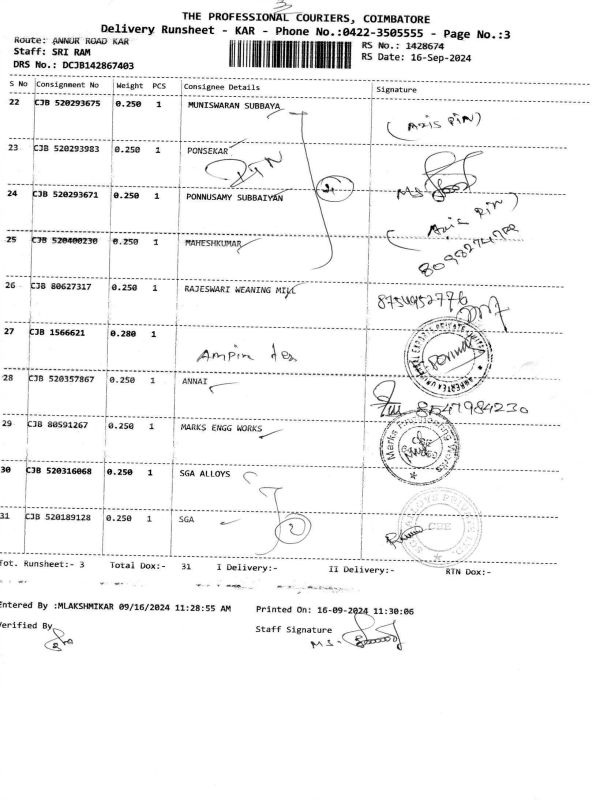 3
THE PROFESSIONAL COURIERS, COIMBATORE
Delivery Runsheet - KAR - Phone No.:0422-3505555 - Page No.:3
Route: ANNUR ROAD KAR
Staff: SRI RAM
DRS No.: DCJB142867403
RS No.: 1428674
RS Date: 16-Sep-2024
S No Consignment No Weight PCS Consignee Details Signature
22 CJB 520293675 0.250 1 MUNISWARAN SUBBAYA
(Axis PIN)
23 CJB 520293983 0.250 1 PONSEKAR
PIN
24 CJB 520293671 0.250 1 PONNUSAMY SUBBAIYAN
MS
(Axis PIN)
25 CJB 520400230 0.250 1 MAHESHKUMAR
26 CJB 80627317 0.250 1 RAJESWARI WEANING MILL 8754952776
27 CJB 1566621 0.280 1
Ampin tex
28 CJB 520357867 0.250 1 ANNAI
8547984230
29 CJB 80591267 0.250 1 MARKS ENGG WORKS
Marks Engineering Works
30 CJB 520316068 0.250 1 SGA ALLOYS
31 CJB 520189128 0.250 1 SGA
2
CBE
Tot. Runsheet:- 3 Total Dox:- 31 I Delivery:- II Delivery:- RTN Dox:-
Entered By :MLAKSHMIKAR 09/16/2024 11:28:55 AM Printed On: 16-09-2024 11:30:06
Verified By
Staff Signature
MS.